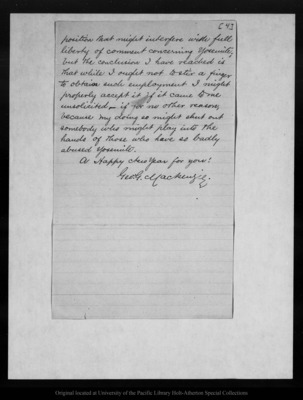 [4]
position that might interfere with full
liberty of comment concerning Yosemite,
but the conclusion I have reached is
that while I ought not to stir a finger
to obtain such employment I might
properly accept it if it came to me
unsolicited – if for no other reason,
because my doing so might shut out
somebody who might play into the
hands of those who have so badly
abused Yosemite.
A Happy New Year for you!
Geo. G. Mackenzie.
Original located at University of the Pacific Library Holt-Atherton Special Collections